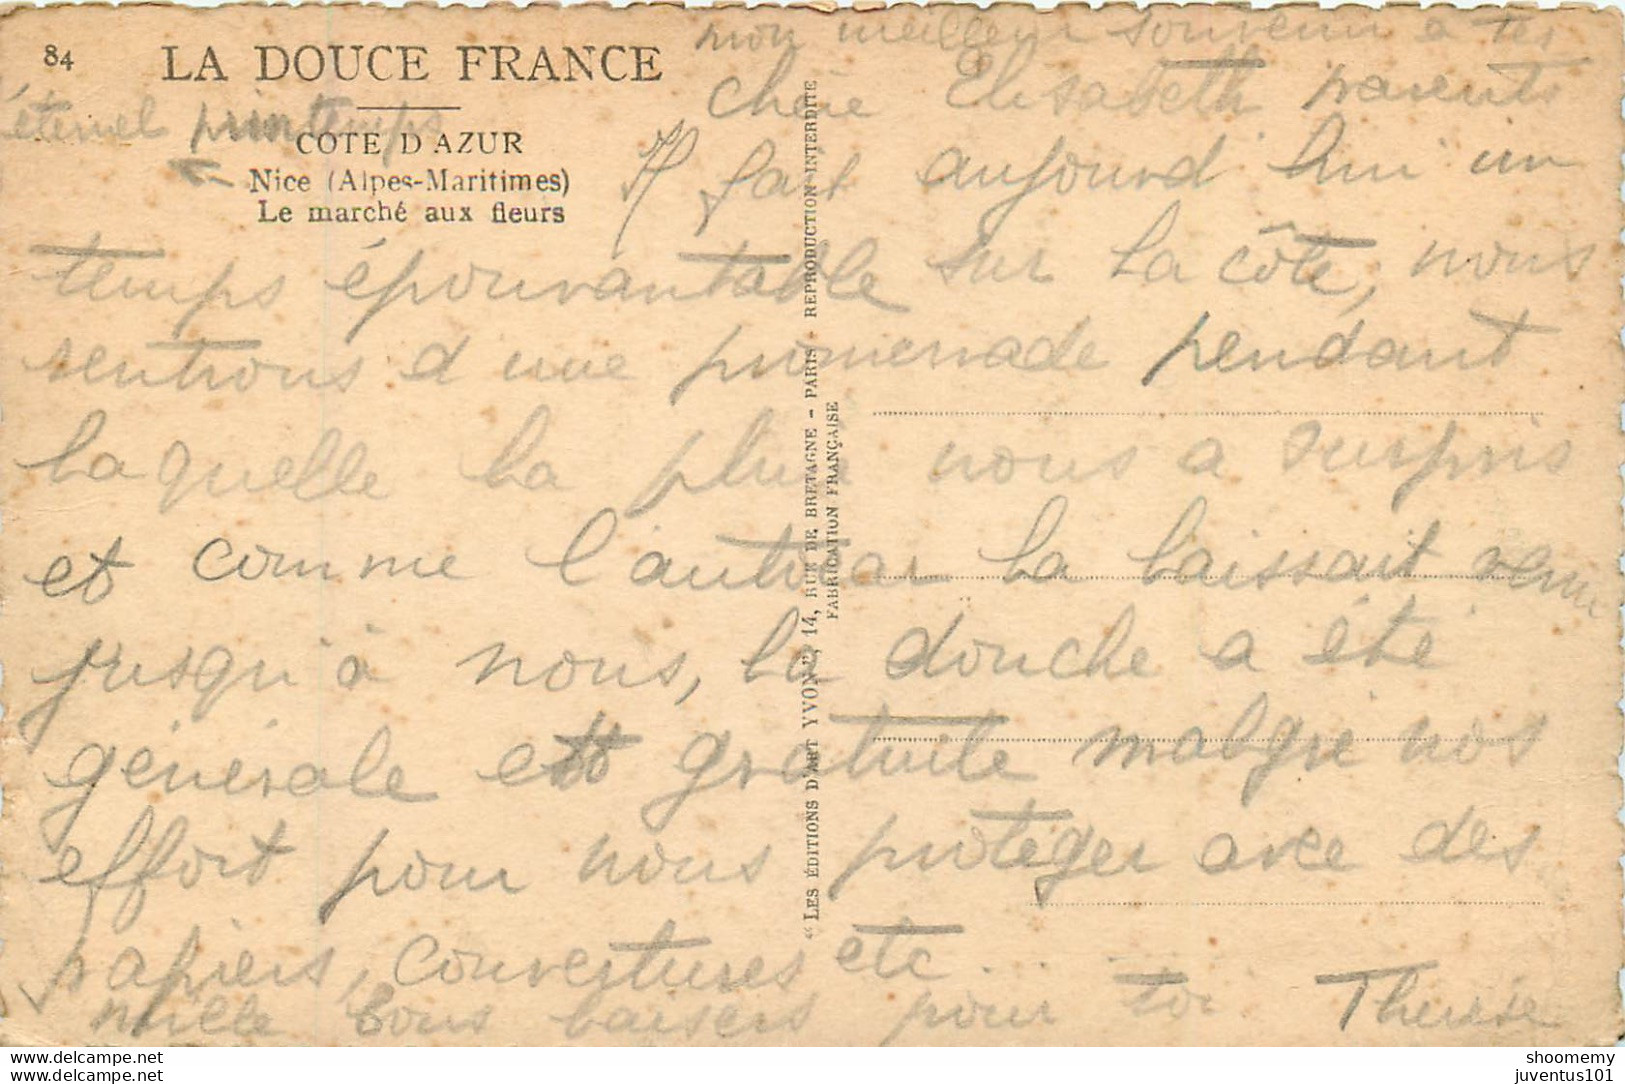 mon meilleur souvenir à tes
parents
84 LA DOUCE FRANCE
éternel printemps
COTE D'AZUR
Nice (Alpes-Maritimes)
Le marché aux fleurs
Chère Elisabeth
Il fait aujourd'hui un
temps épouvantable sur la côte, nous
rentrons d'une promenade pendant
laquelle la pluie nous a surpris
et comme l'autocar la laissait venir
jusqu'à nous, la douche a été
générale et gratuite malgré nos
effort pour nous protéger avec des
papiers, couvertures etc...
mille bons baisers pour toi Thérèse
"LES ÉDITIONS D'ART YVON", 14, RUE DE BRETAGNE - PARIS - REPRODUCTION INTERDITE
FABRICATION FRANÇAISE
Delcampe.net
shoomemy
juventus101